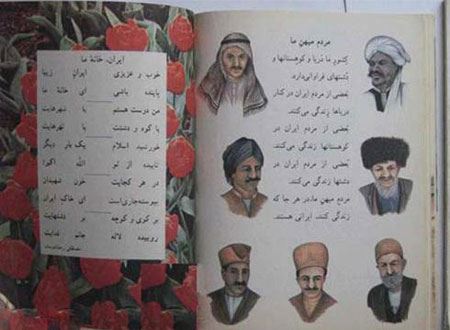 مردم میهن ما
کشور ما دریا و کوهستانها و
دشتهای فراوانی دارد.
بعضی از مردم ایران در کنار
دریاها زندگی می‌کنند.
بعضی از مردم ایران در
کوهستانها زندگی می‌کنند.
بعضی از مردم ایران در
دشتها زندگی می‌کنند.
مردم میهن ما، در هر جا که
زندگی کنند، ایرانی هستند.
ایران، خانهٔ ما
خوب و عزیزی ایران زیبا
پاینده باشی ای خانهٔ ما
من دوست هستم با شهرهایت
با کوه و دشتت با نهرهایت
خورشید اسلام یک بار دیگر
تابیده از تو الله اکبر!
در هر کجایت خون شهیدان
پیوسته جاری‌ست ای خاک ایران
بر کوی و کوچه بر دشتهایت
روییده لاله جانم فدایت
مصطفی رحماندوست